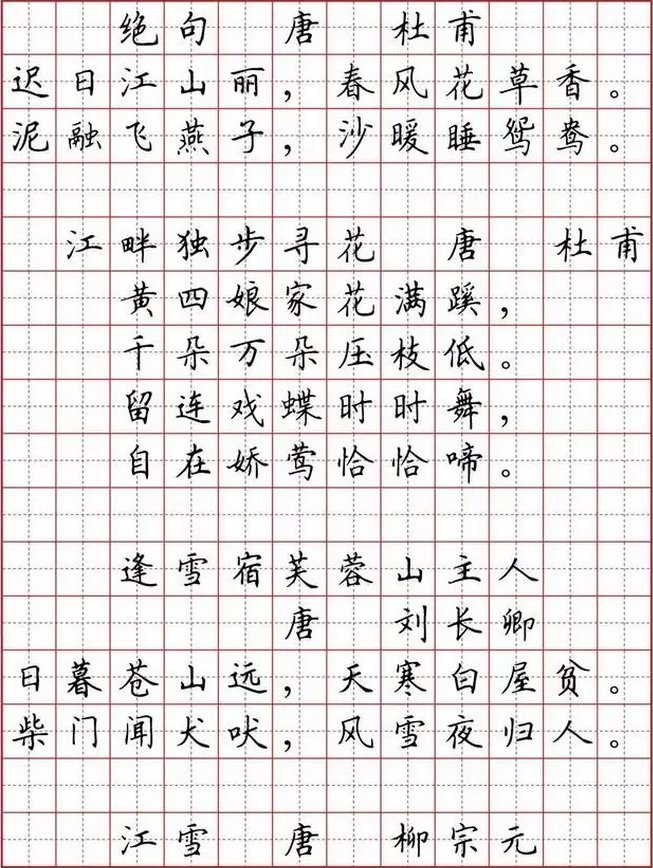 绝句 唐 杜甫
迟日江山丽，春风花草香。
泥融飞燕子，沙暖睡鸳鸯。
江畔独步寻花 唐 杜甫
黄四娘家花满蹊，
千朵万朵压枝低。
留连戏蝶时时舞，
自在娇莺恰恰啼。
逢雪宿芙蓉山主人
唐 刘长卿
日暮苍山远，天寒白屋贫。
柴门闻犬吠，风雪夜归人。
江雪 唐 柳宗元